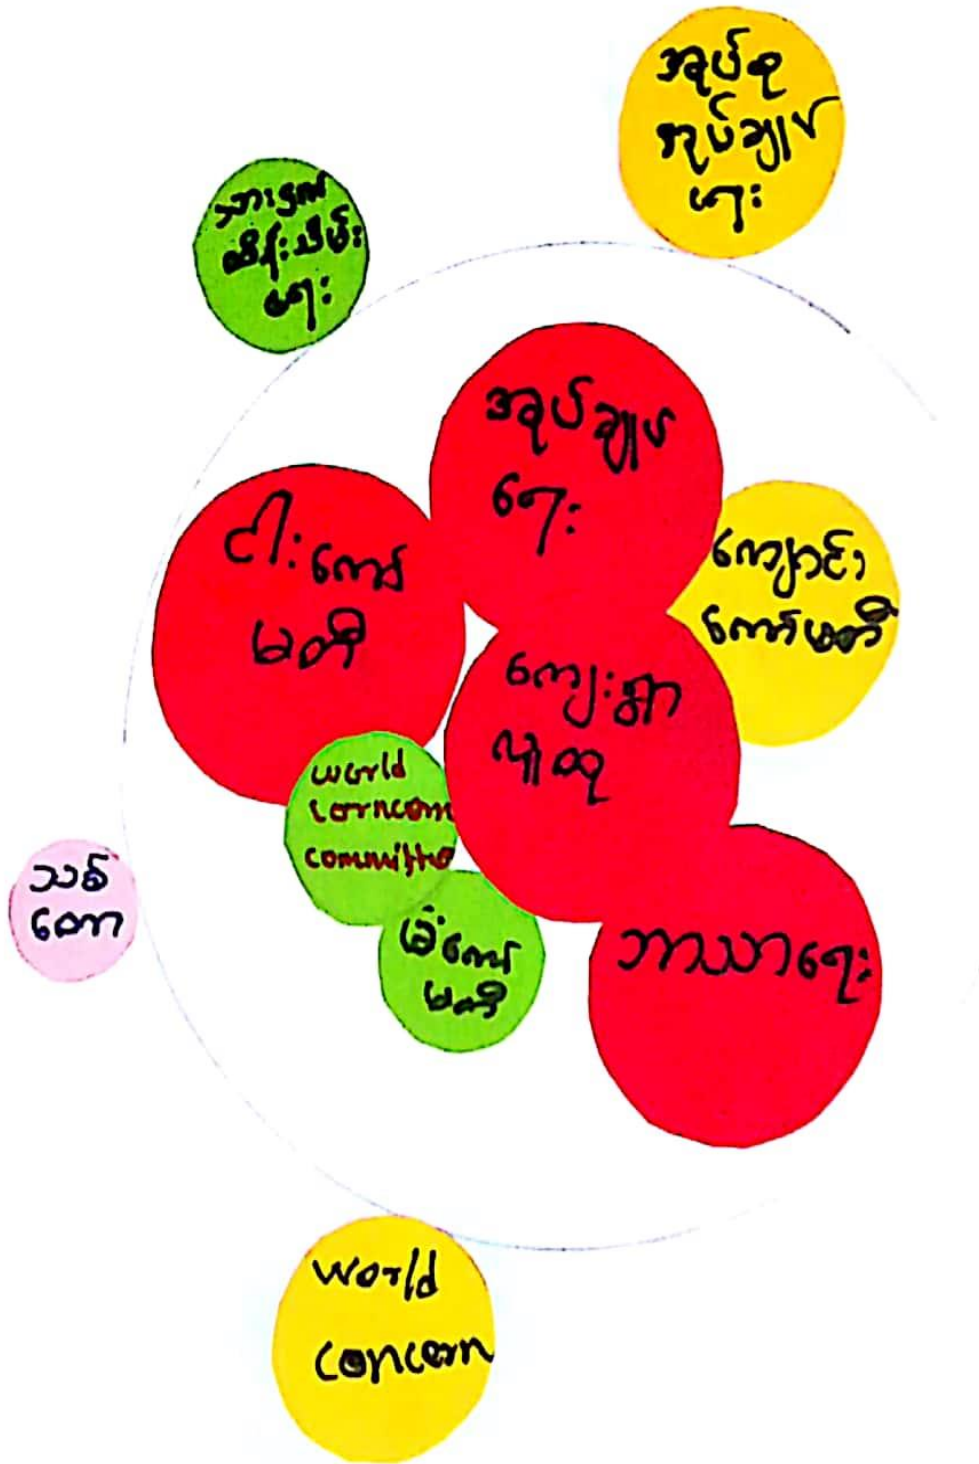 အုပ်စု
အုပ်ချုပ်
ရေး
သားငှက်
ထိန်းသိမ်း
ရေး
အုပ်ချုပ်
ရေး
ငါးကော်
မတီ
ကျောင်း
ကော်မတီ
ကျေးရွာ
လူထု
world
committe
သစ်
တော
မီးကော်
မတီ
ဘာသာရေး
World
concern